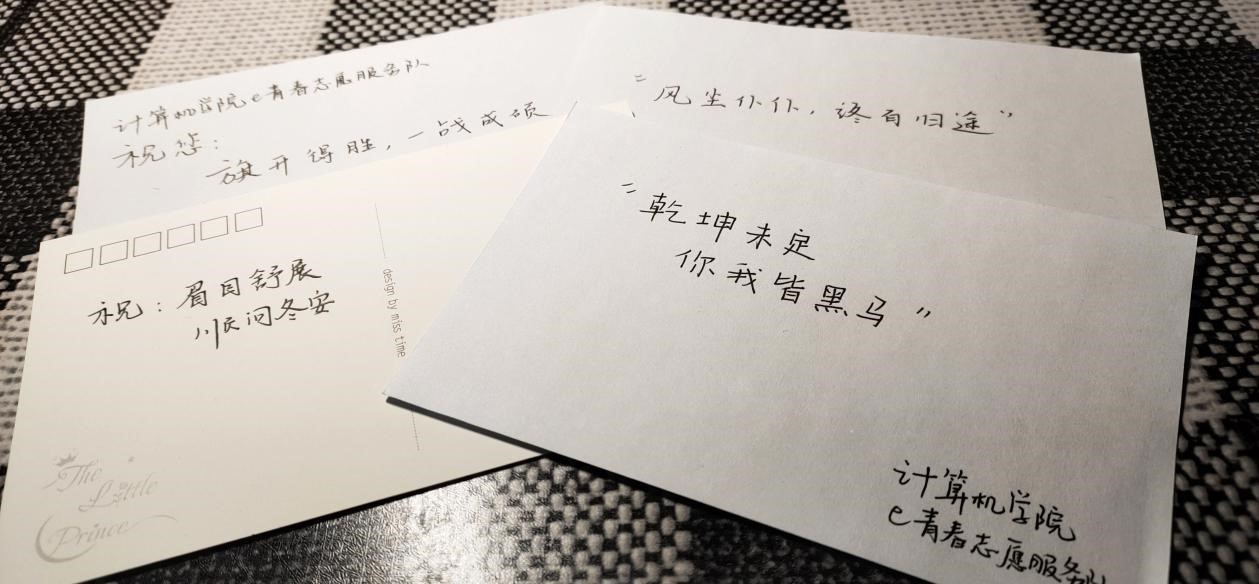 计算机学院e青春志愿服务队
祝您:
旗开得胜,一战成硕
"风尘仆仆,终有归途"
祝:眉目舒展
顺问冬安
design by miss time
The
Little
Prince
"乾坤未定
你我皆黑马"
计算机学院
e青春志愿服务队